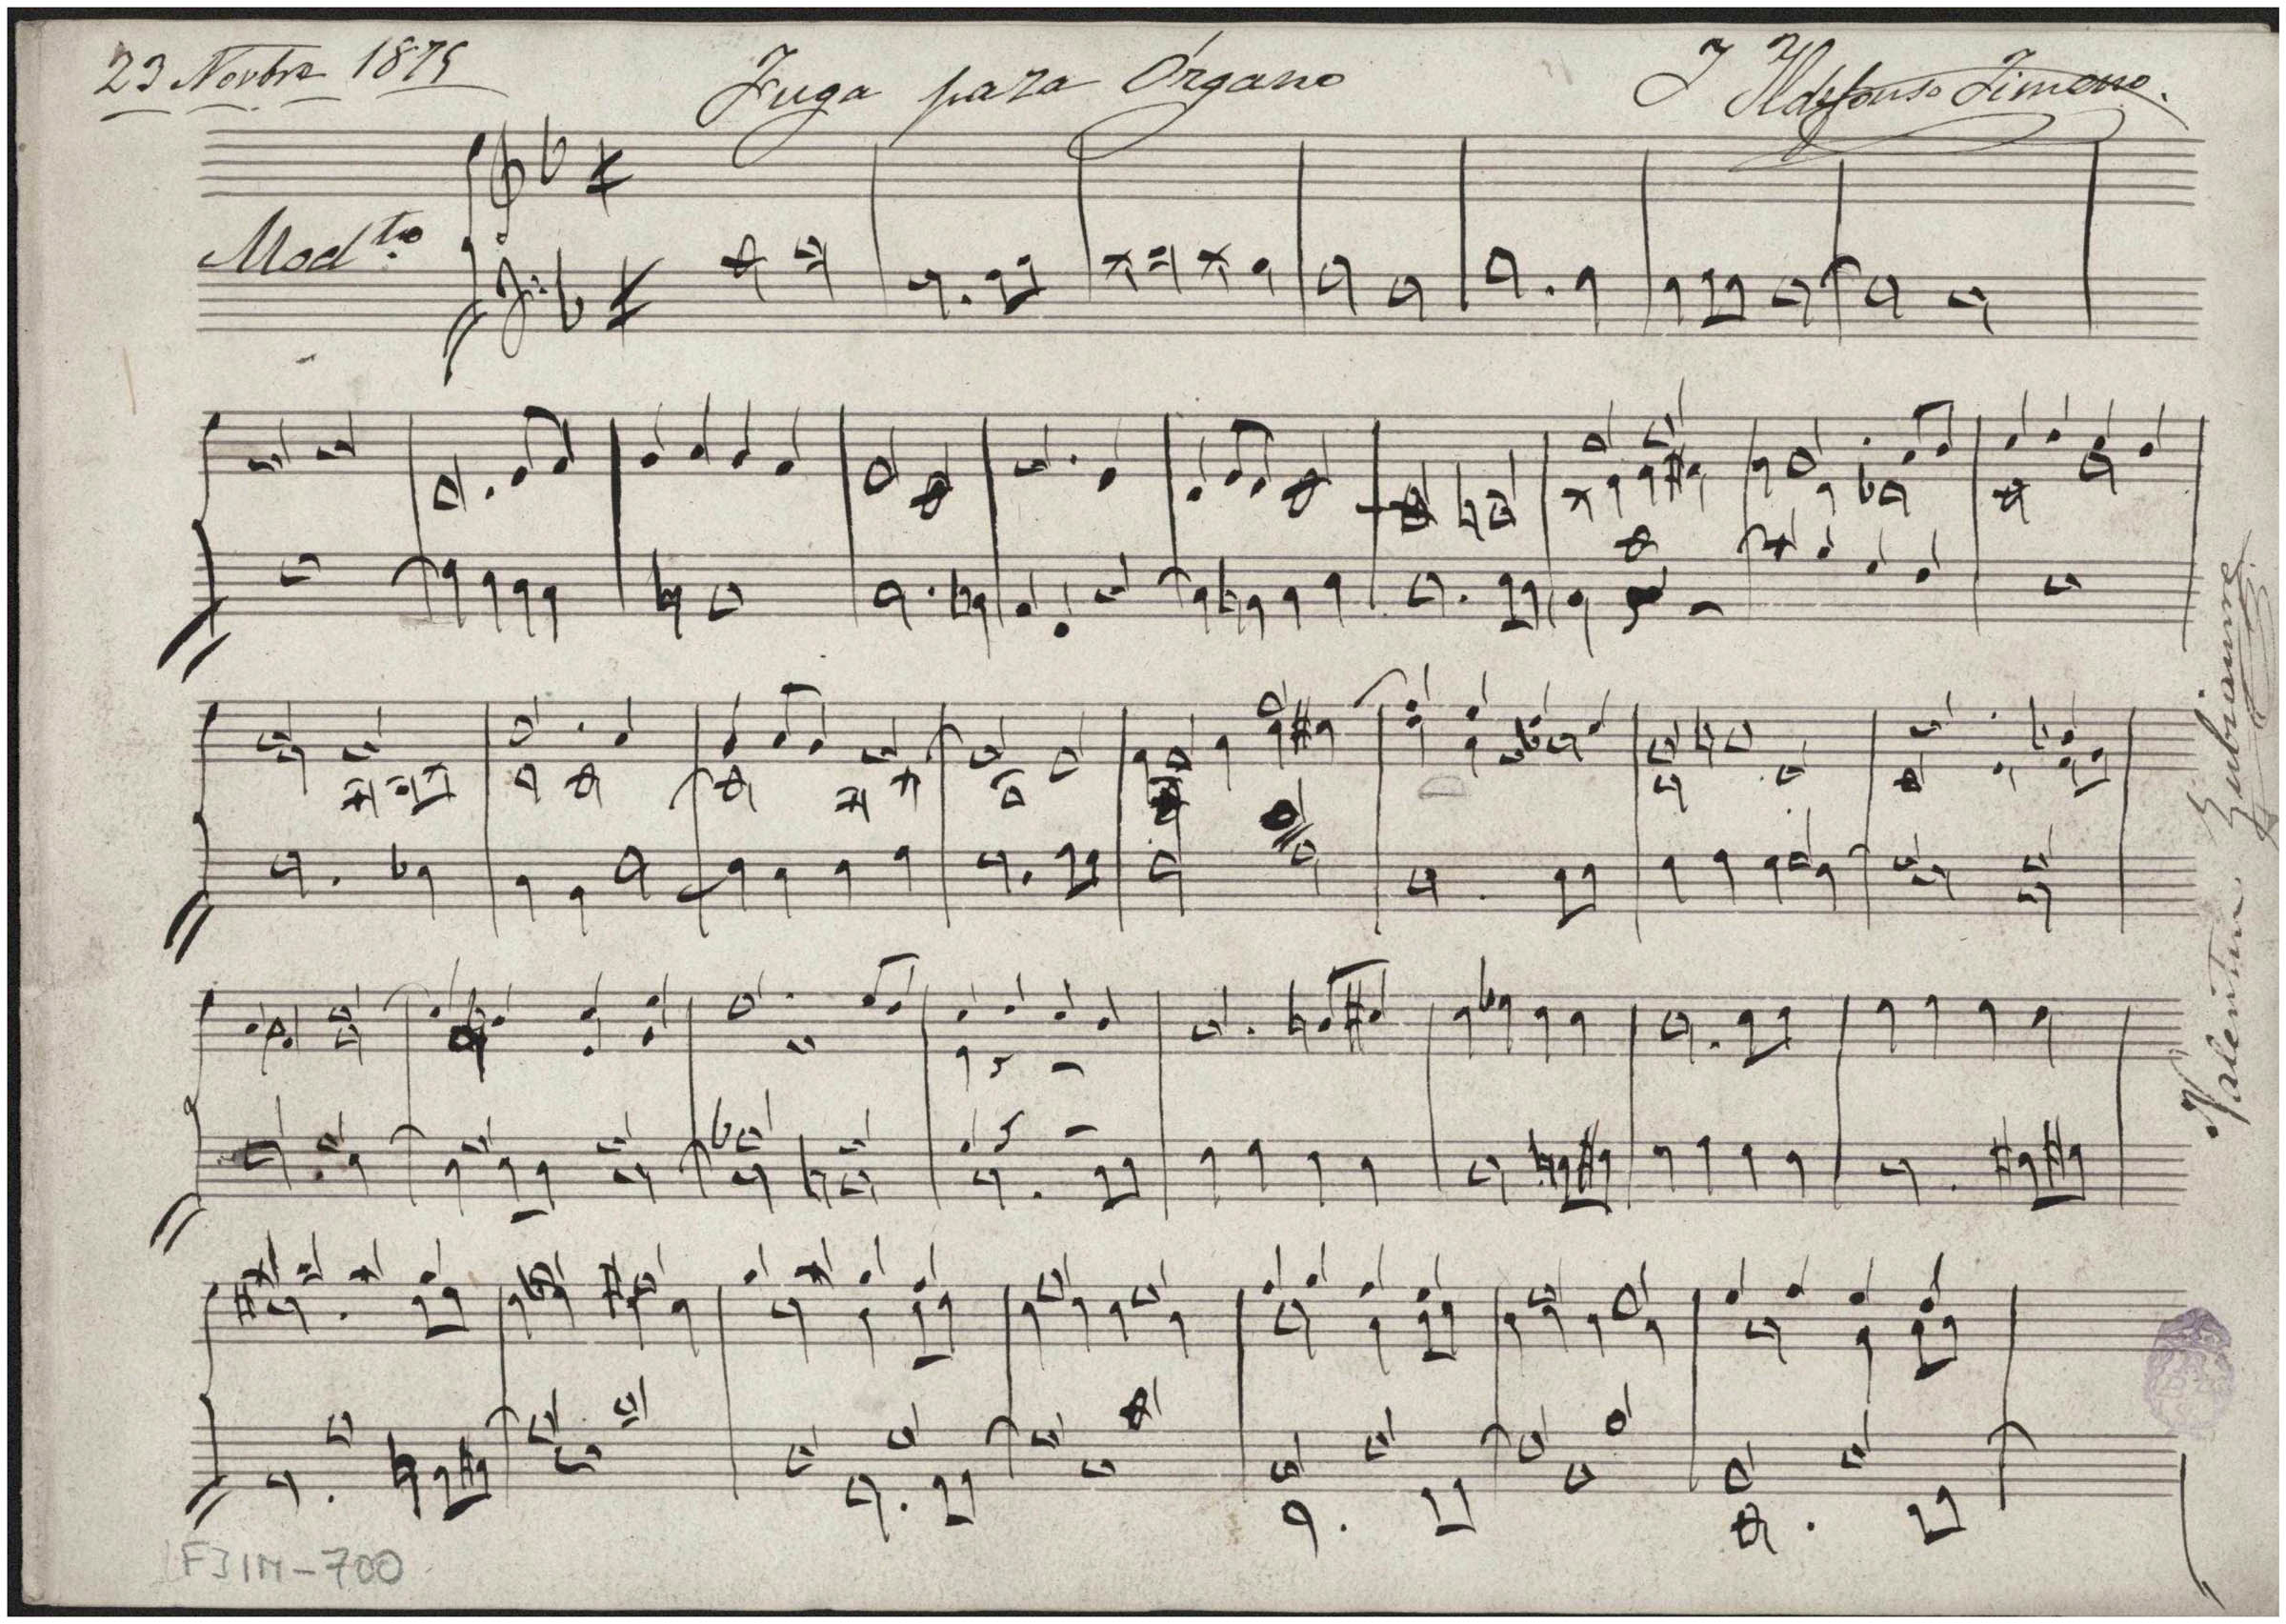 23 Novbre 1875
Fuga para Órgano
J Ildefonso Jimeno.
Modto
Valentin Zubiaurre
[F] IM-700